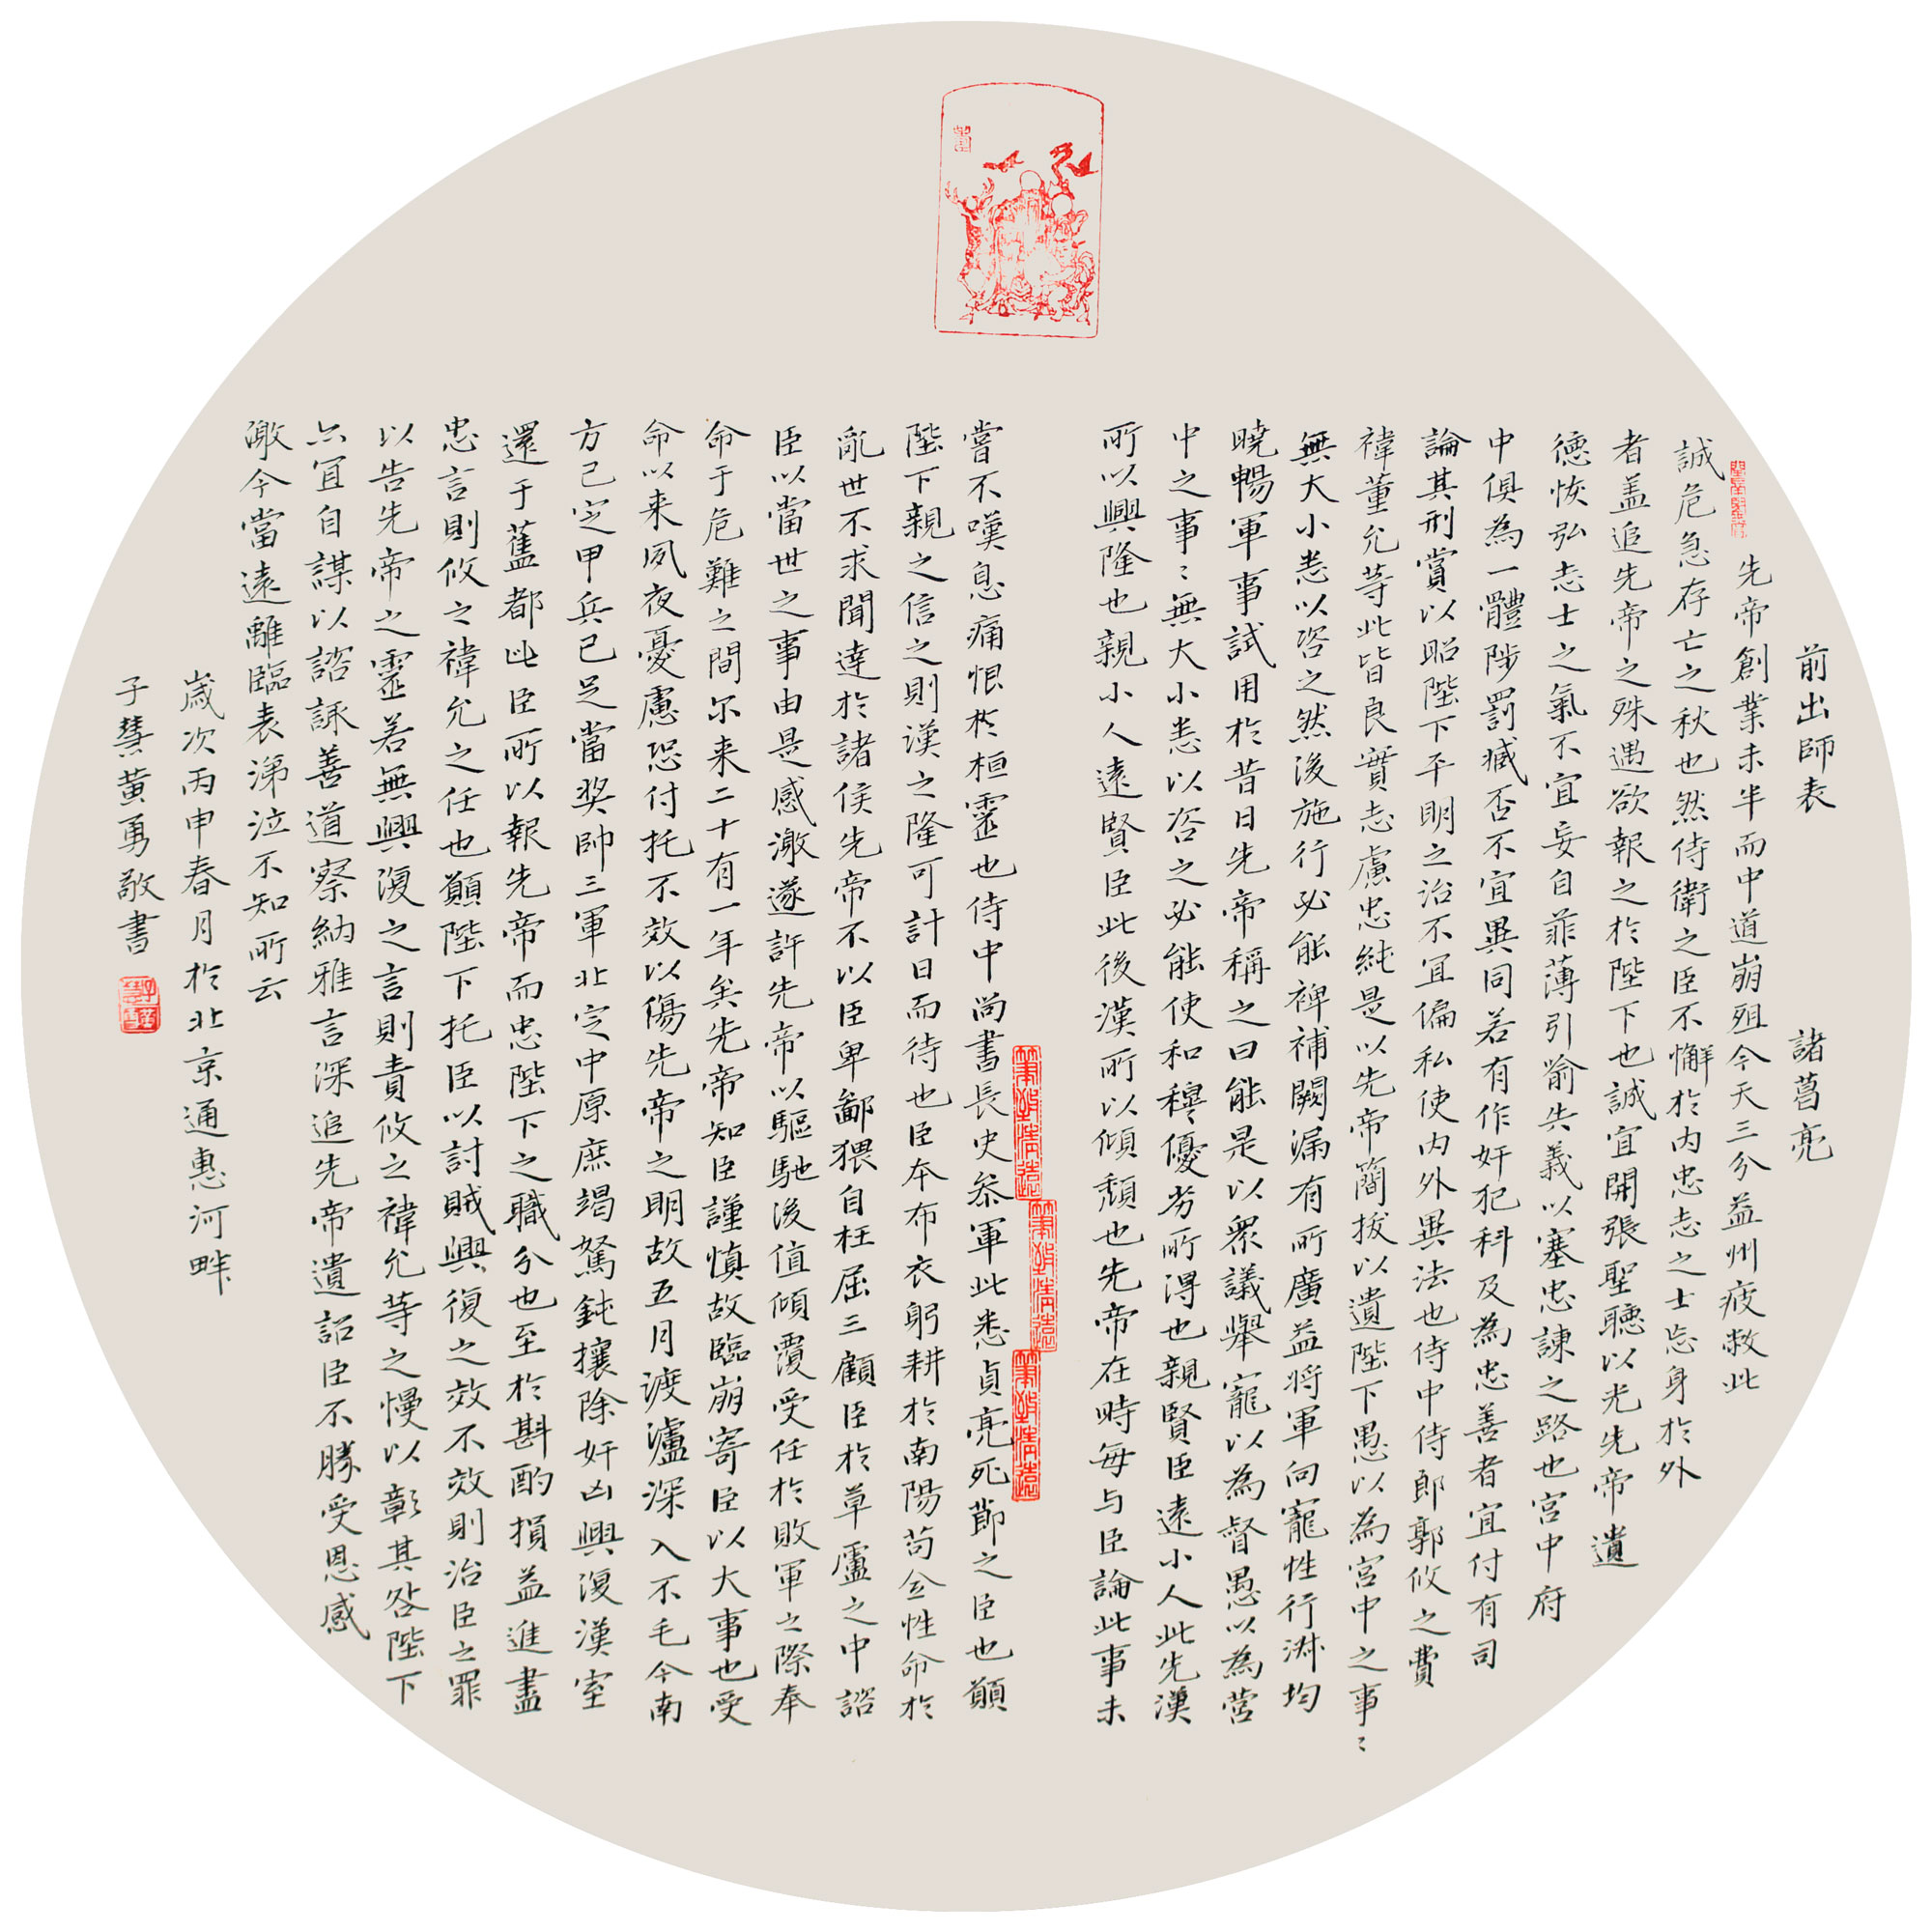 前出師表 諸葛亮
先帝創業未半而中道崩殂今天三分益州疲敝此
誠危急存亡之秋也然侍衛之臣不懈於内忠志之士忘身於外
者盖追先帝之殊遇欲報之於陛下也誠宜開張聖聽以光先帝遺
德恢弘志士之氣不宜妄自菲薄引喻失義以塞忠諫之路也宫中府
中俱為一體陟罰臧否不宜異同若有作奸犯科及為忠善者宜付有司
論其刑賞以昭陛下平明之治不宜偏私使内外異法也侍中侍郎郭攸之費
禕董允等此皆良實志慮忠純是以先帝簡拔以遺陛下愚以為宫中之事〻
無大小悉以咨之然後施行必能裨補闕漏有所廣益将軍向寵性行淑均
曉暢軍事試用於昔日先帝稱之曰能是以衆議舉寵以為督愚以為營
中之事〻無大小悉以咨之必能使和穆優劣所得也親賢臣遠小人此先漢
所以興隆也親小人遠賢臣此後漢所以傾頹也先帝在時每与臣論此事未
嘗不嘆息痛恨於桓靈也侍中尚書長史参軍此悉貞亮死節之臣也願
陛下親之信之則漢之隆可計日而待也臣本布衣躬耕於南陽苟全性命於
亂世不求聞達於諸侯先帝不以臣卑鄙猥自枉屈三顧臣於草廬之中諮
臣以當世之事由是感激遂許先帝以驅馳後值傾覆受任於敗軍之際奉
命于危難之間尔来二十有一年矣先帝知臣謹慎故臨崩寄臣以大事也受
命以来夙夜憂慮恐付托不效以傷先帝之明故五月渡瀘深入不毛今南
方已定甲兵已足當奖帥三軍北定中原庶竭駑鈍攘除奸凶興復漢室
還于舊都此臣所以報先帝而忠陛下之職分也至於斟酌損益進盡
忠言則攸之禕允之任也願陛下托臣以討賊興復之效不效則治臣之罪
以告先帝之靈若無興復之言則責攸之禕允等之慢以彰其咎陛下
亦宜自謀以諮諏善道察納雅言深追先帝遺詔臣不勝受恩感
激今當遠離臨表涕泣不知所云
歲次丙申春月於北京通惠河畔
子彗黄勇敬書